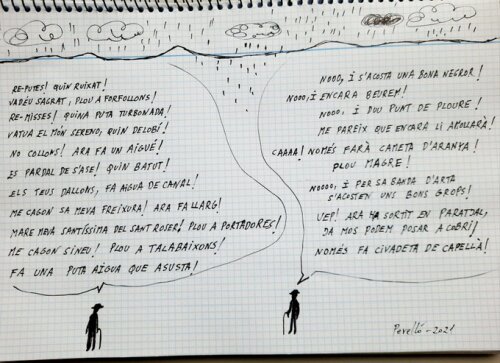 RE-PUTES! QUIN RUIXAT!
VADÉU SAGRAT, PLOU A FORFOLLONS!
RE-MISSES! QUINA PUTA TURBONADA!
VATUA EL MÓN SERENO, QUIN DELOBI!
NO COLLONS! ARA FA UN AIGUÉ!
ES PARDAL DE S'ASE! QUIN BATUT!
ELS TEUS DALLONS, FA AIGUA DE CANAL!
ME CAGON SA MEVA FREIXURA! ARA FA LLARG!
MARE MEVA SANTÍSSIMA DEL SANT ROSER! PLOU A PORTADORES!
ME CAGON SINEU! PLOU A TALABAIXONS!
FA UNA PUTA AIGUA QUE ASUSTA!
NOOO, I S'ACOSTA UNA BONA NEGROR!
NOOO, I ENCARA BEUREM!
NOOO, I DUU PUNT DE PLOURE!
ME PAREIX QUE ENCARA LI AMOLLARÀ!
CAAAA! NOMÉS FARÀ CAMETA D'ARANYA!
PLOU MAGRE!
NOOOO, I PER SA BANDA D'ARTA
S'ACOSTEN UNS BONS GROPS!
UEP! ARA HA SORTIT EN PARATJAL,
JA MOS PODEM POSAR A COBRI!
NOMÉS FA CIVADETA DE CAPELLÀ!
Perelló - 2021